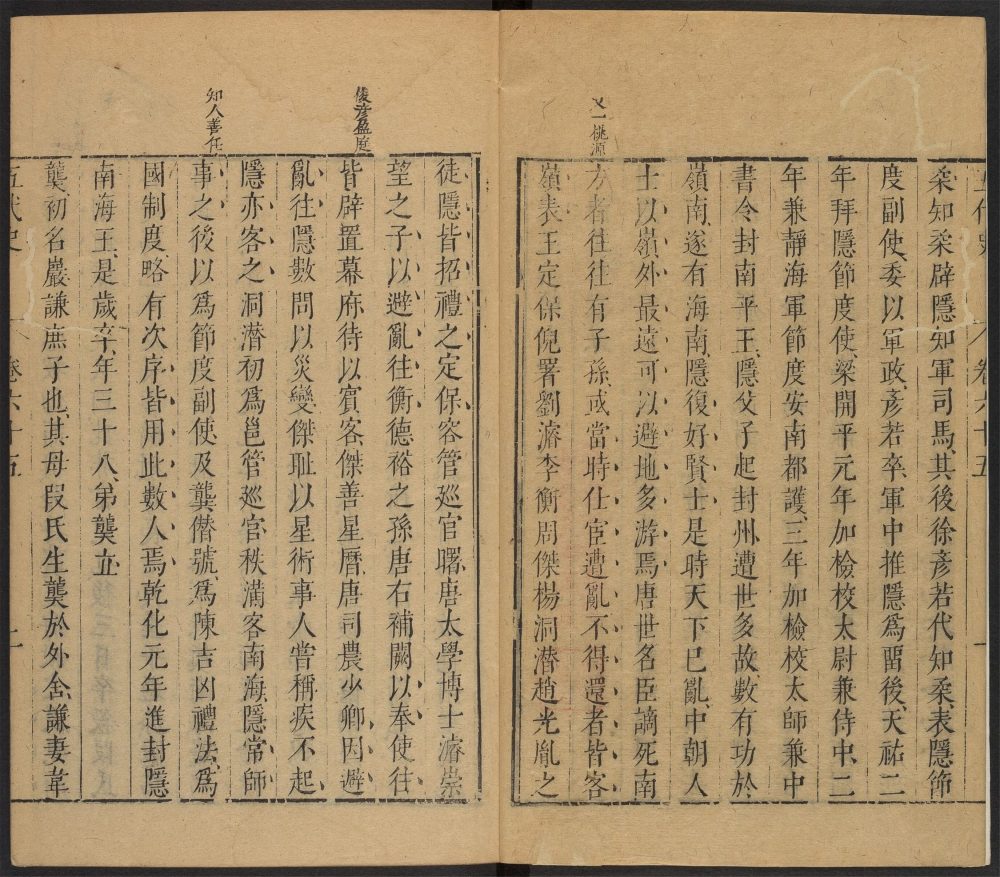 五代史 卷六十五 一
柔知柔辟隱知軍司馬其後徐彥若代知柔表隱節
度副使委以軍政彥若卒軍中推隱爲畱後天祐二
年拜隱節度使梁開平元年加檢校太尉兼侍中二
年兼靜海軍節度安南都護三年加檢校太師兼中
書令封南平王隱父子起封州遭世多故數有功於
嶺南遂有海南隱復好賢士是時天下已亂中朝人
士以嶺外最遠可以避地多游焉唐世名臣謫死南
方者往往有子孫或當時仕宦遭亂不得還者皆客
嶺表王定保倪署劉濬李衡周傑楊洞潛趙光胤之
又一桃源
徒隱皆招禮之定保容管巡官曙唐太學博士濬崇
望之子以避亂往衡德裕之孫唐右補闕以奉使往
皆辟置幕府待以賓客傑善星曆唐司農少卿因避
亂往隱數問以災變傑耻以星術事人嘗稱疾不起
隱亦客之洞潛初爲邕管巡官秩滿客南海隱常師
事之後以爲節度副使及龑僭號爲陳吉凶禮法爲
國制度略有次序皆用此數人焉乾化元年進封隱
南海王是歲卒年三十八弟龑立
龑初名巖謙庶子也其母段氏生龑於外舍謙妻韋
俊彥盈庭
知人善任
五代史 卷六十五